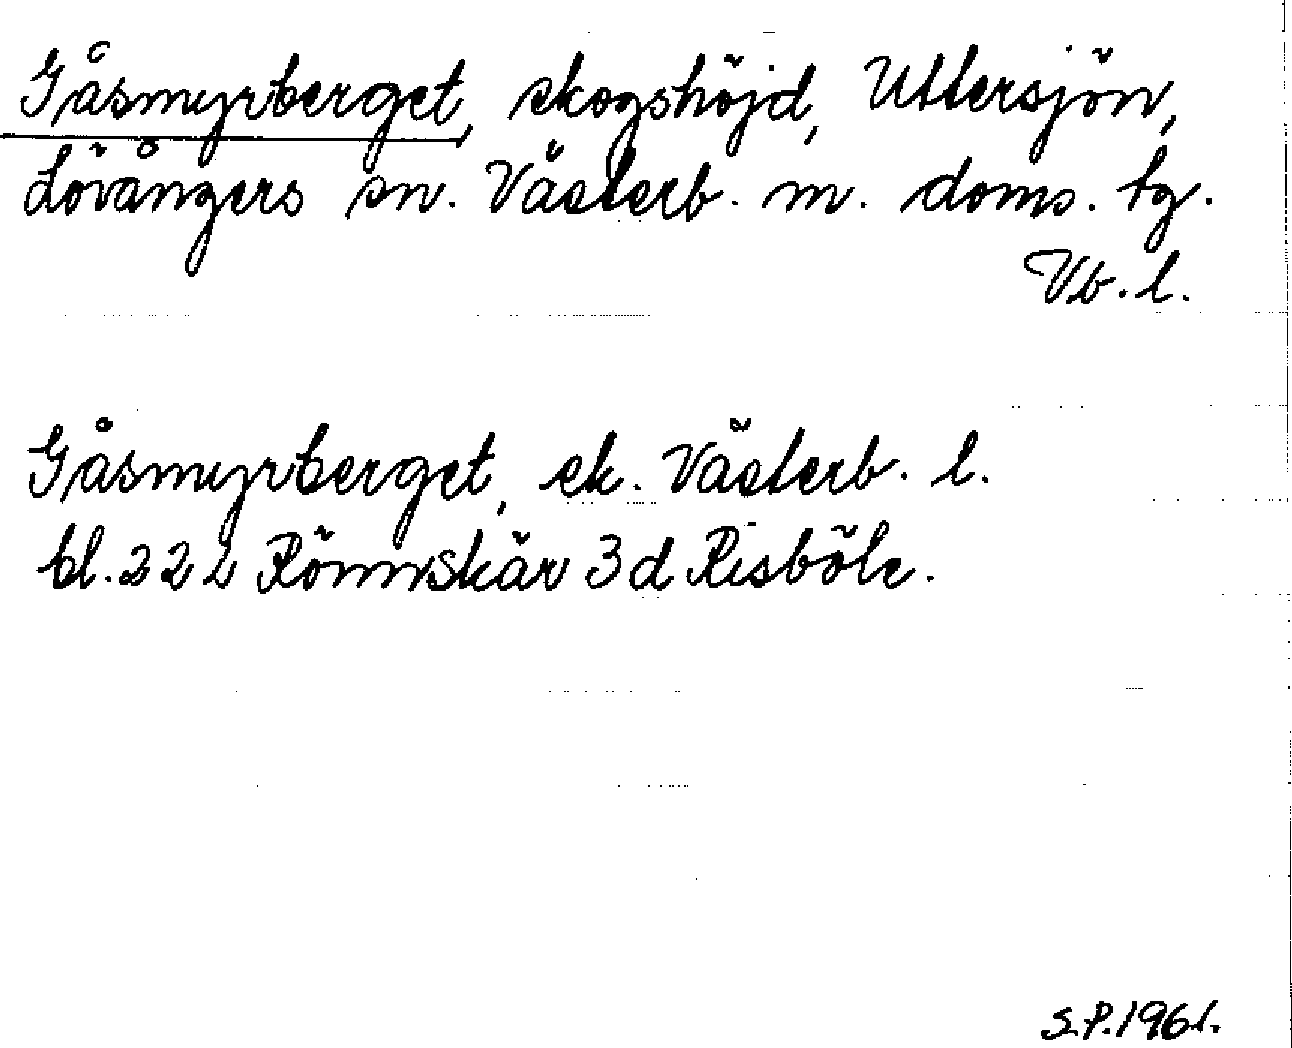 Gåsmyrberget, skogshöjd, Uttersjön,
Lövångers sn. Västerb. m. doms. tg.
Vb. l.
Gåsmyrberget, ek. Västerb. l.
bl. 222 Rönnskär 3d Risböle.
S.P. 1961.